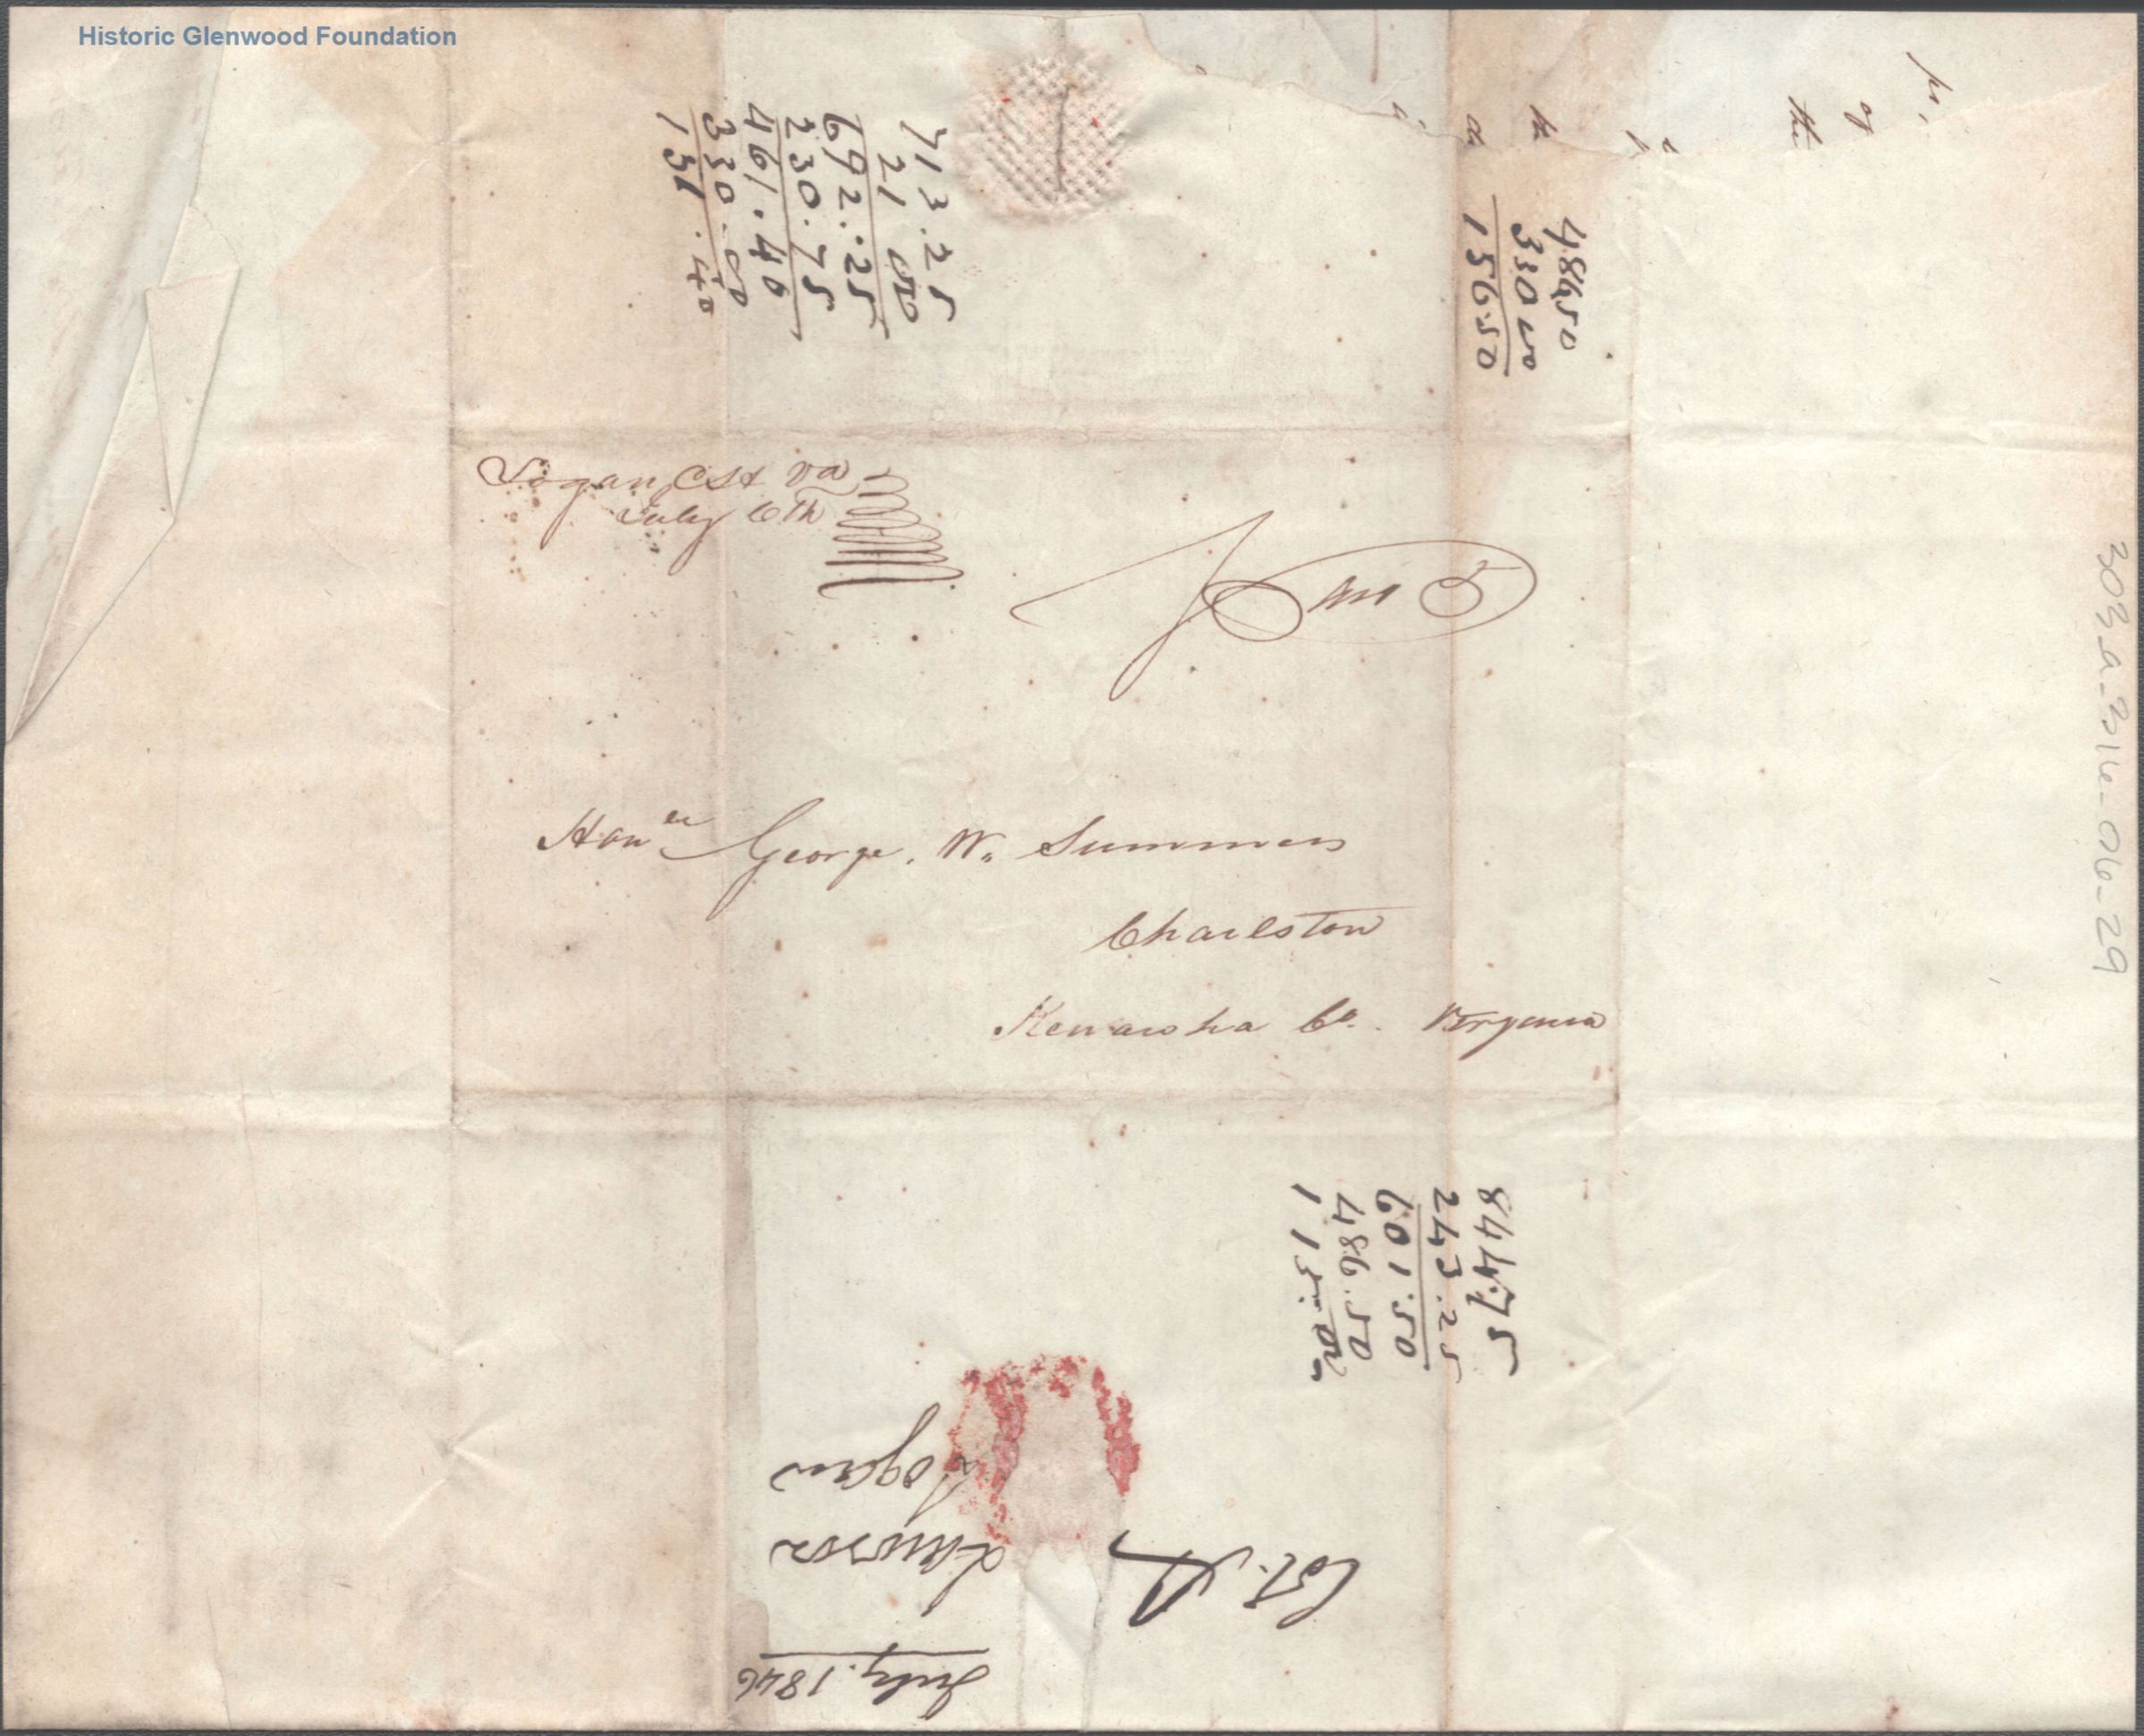 Historic Glenwood Foundation
713.25
21 00
692.25
230.75
461.40
330.00
131.40
of
the
486.50
330 00
156.50
Logan CH va
July 6th
5
Honle George. W. Summers
Charlston
Kenawha Co. Virginia
303a-316-06-29
844.75
243.25
601.50
486.50
115.00
Lawson
Logan
July. 1846